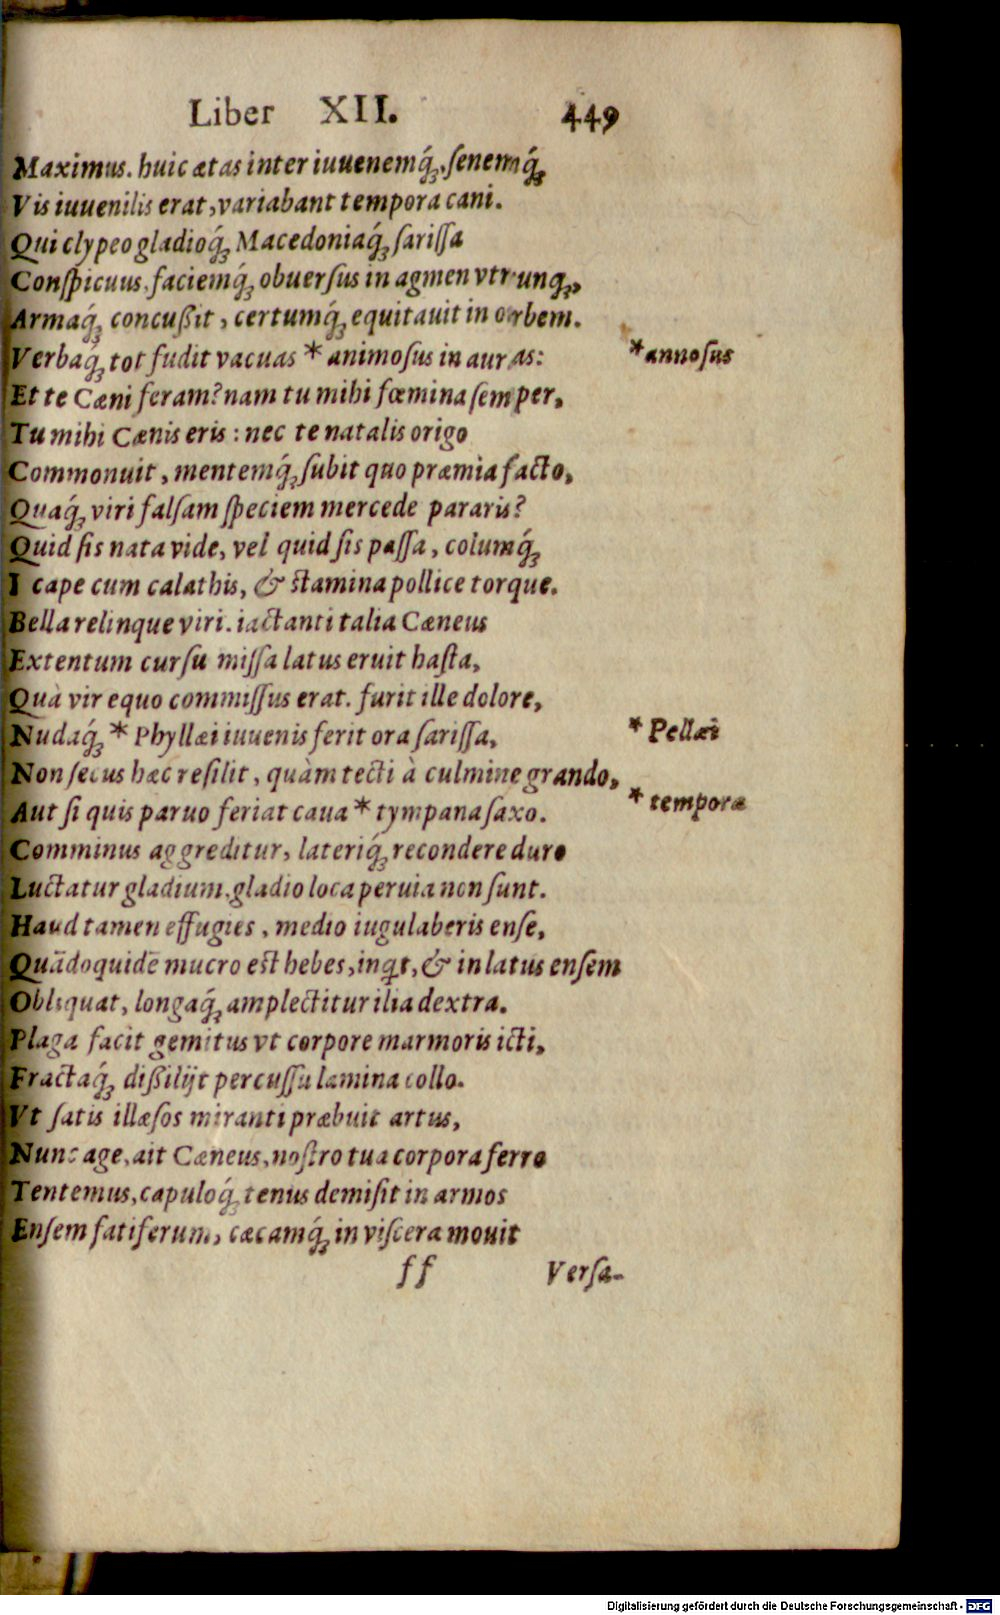 Liber XII. 449
Maximus. huic ætas inter iuuenemq́ꝫ, ſenemq́ꝫ,
Vis iuuenilis erat, variabant tempora cani.
Qui clypeo gladioq́ꝫ Macedoniaq́ꝫ ſariſſa
Conſpicuus, faciemq́ꝫ obuerſus in agmen vtrunqꝫ,
Armaq́ꝫ concußit, certumq́ꝫ equitauit in orbem.
Verbaq́ꝫ tot fudit vacuas * animoſus in auras:
* annoſus
Et te Cæni feram? nam tu mihi fœmina ſemper,
Tu mihi Cænis eris: nec te natalis origo
Commonuit, mentemq́ꝫ ſubit quo præmia facto,
Quaq́ꝫ viri falſam ſpeciem mercede pararis?
Quid ſis nata vide, vel quid ſis paſſa, columq́ꝫ
I cape cum calathis, & ſtamina pollice torque.
Bella relinque viri. iactanti talia Cæneus
Extentum curſu miſſa latus eruit haſta,
Quà vir equo commiſſus erat. furit ille dolore,
Nudaq́ꝫ * Phyllæi iuuenis ferit ora ſariſſa,
* Pellæi
Non ſecus hæc reſilit, quàm tecti à culmine grando,
Aut ſi quis paruo feriat caua * tympana ſaxo.
* tempora
Comminus aggreditur, lateriq́ꝫ recondere duro
Luctatur gladium. gladio loca peruia non ſunt.
Haud tamen effugies, medio iugulaberis enſe,
Quãdoquidẽ mucro eſt hebes, inqt, & in latus enſem
Obliquat, longaq́ꝫ amplectitur ilia dextra.
Plaga facit gemitus vt corpore marmoris icti,
Fractaq́ꝫ dißilijt percuſſu lamina collo.
Vt ſatis illæſos miranti præbuit artus,
Nunc age, ait Cæneus, noſtro tua corpora ferro
Tentemus, capuloq́ꝫ tenus demiſit in armos
Enſem fatiferum, cæcamq́ꝫ in viſcera mouit
ff Verſa-
Digitalisierung gefördert durch die Deutsche Forschungsgemeinschaft - DFG